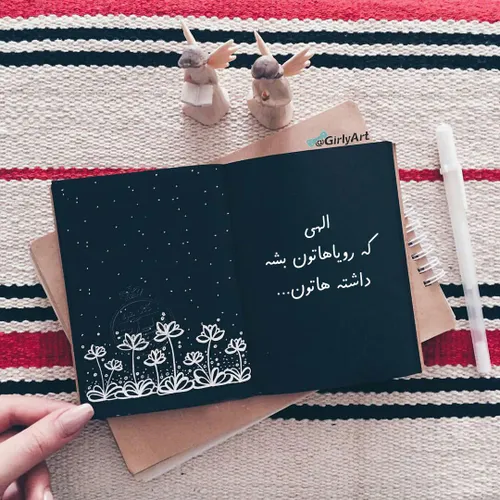 @GirlyArt
الهی
که رویاهاتون بشه
داشته هاتون...